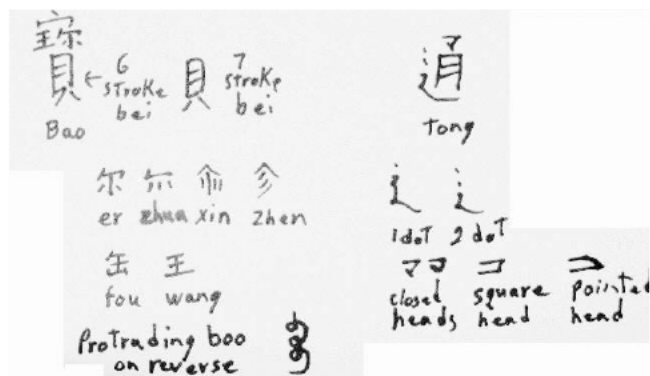 寶
6
stroke
bei
貝
7
stroke
bei
Bao
通
Tong
尔
er zhua xin zhen
缶 王
fou wang
Protrading boo
on reverse
1 dot 2 dot
closed
heads
square
head
pointed
head